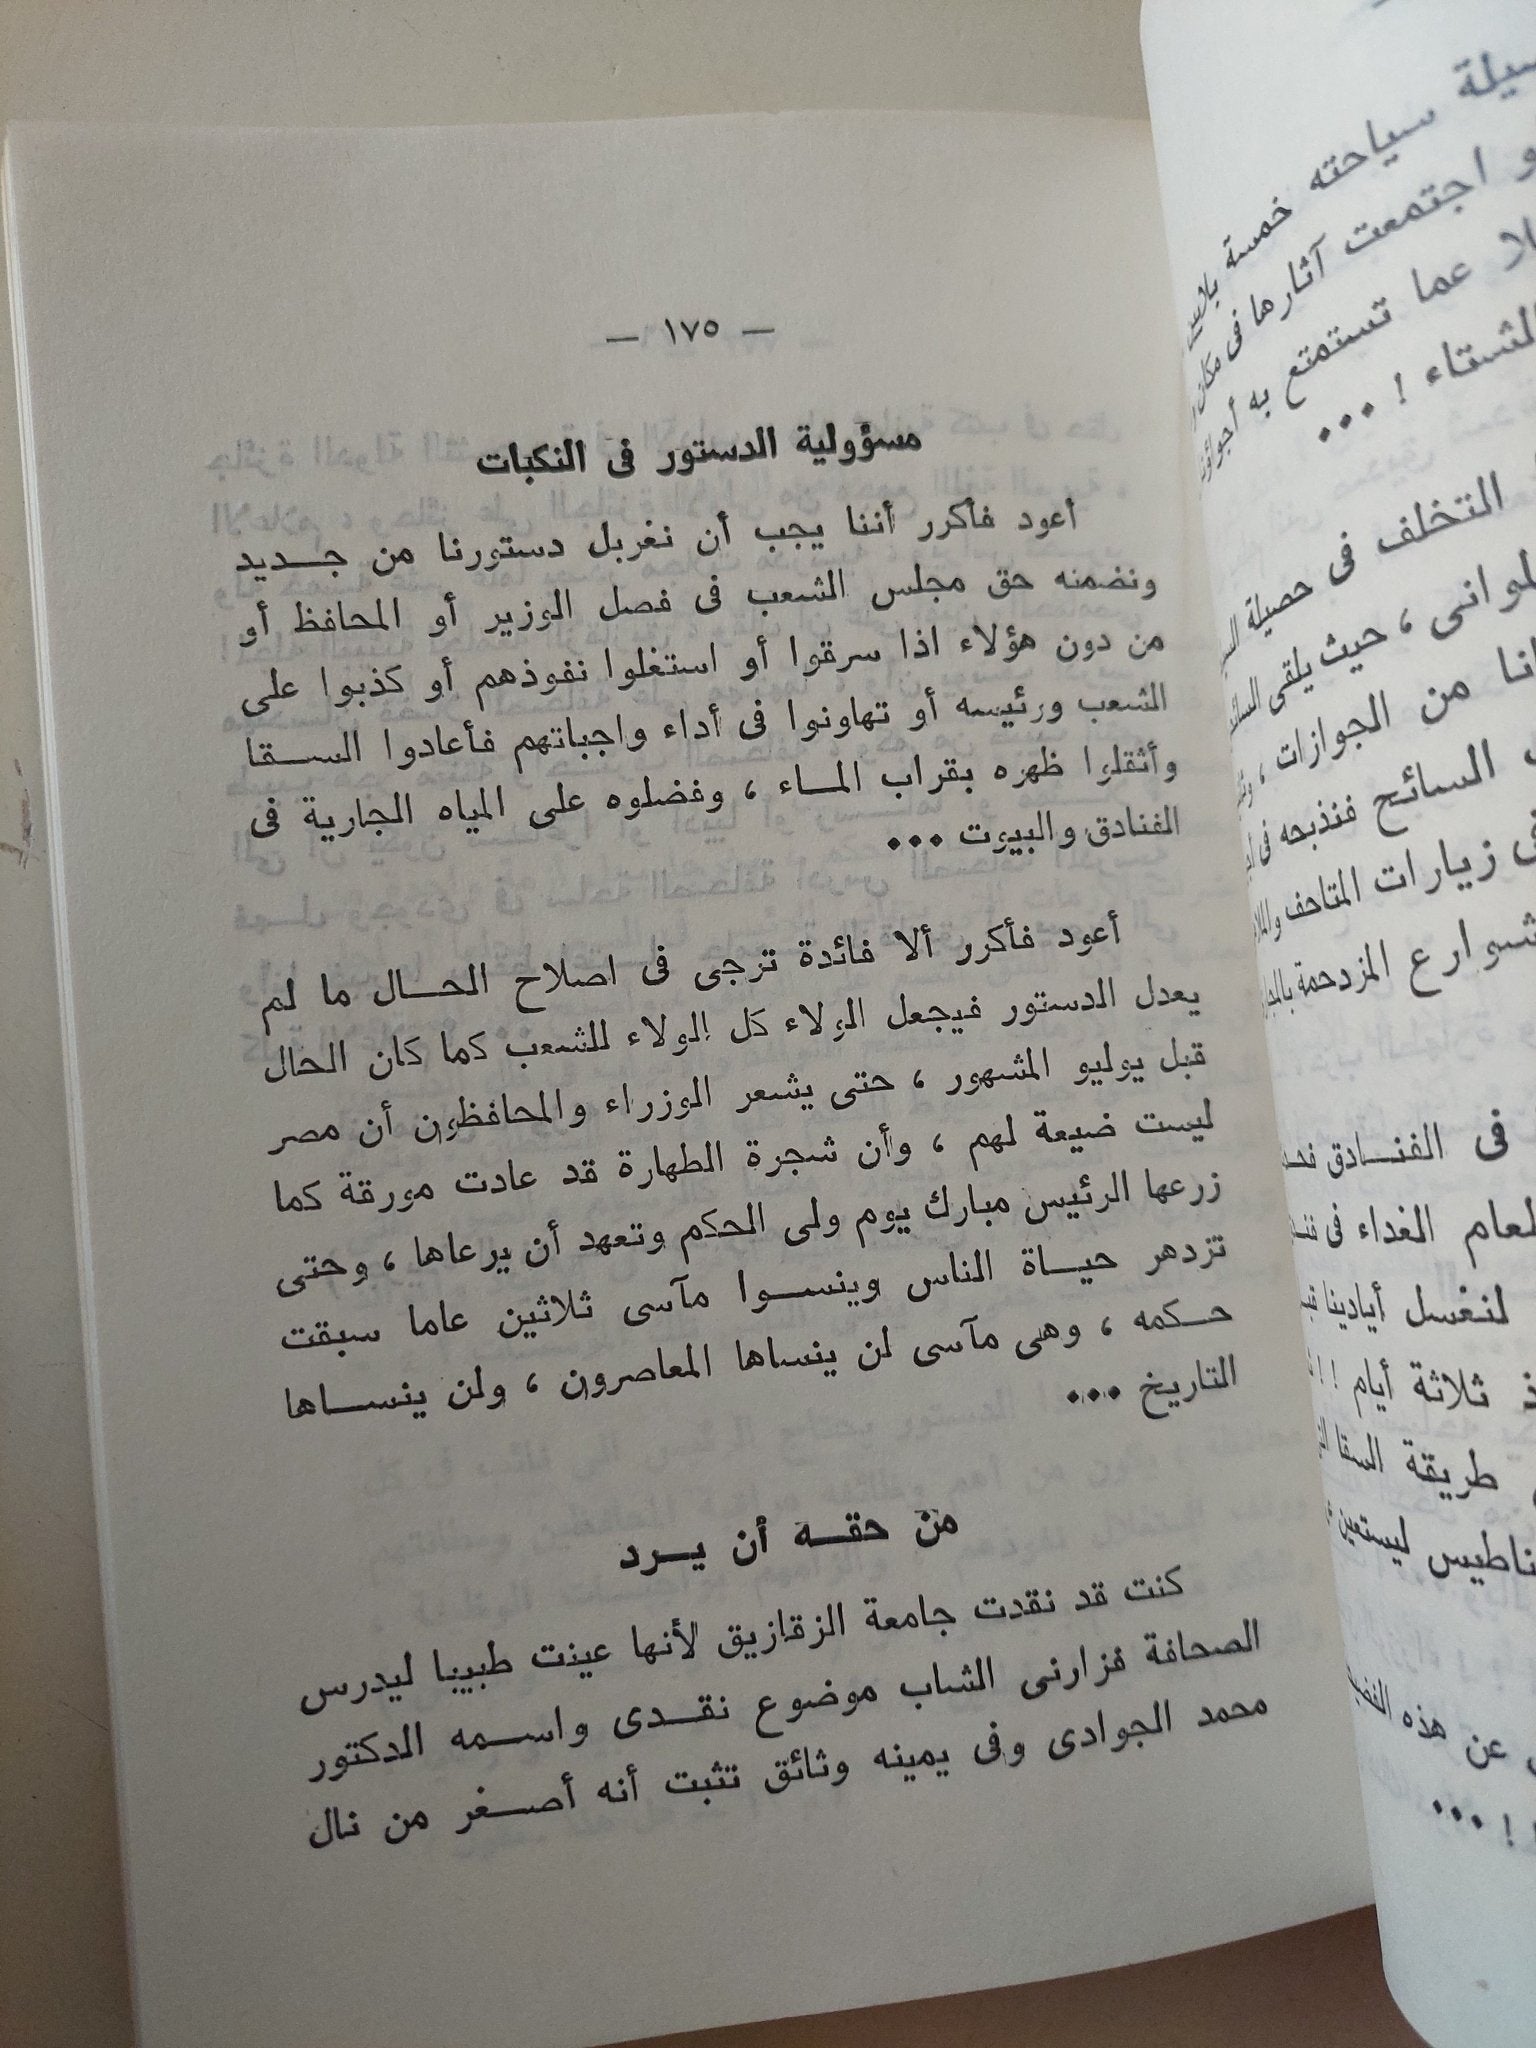 — ١٧٥ —
مسؤولية الدستور فى النكبات
أعود فأكرر أننا يجب أن نغربل دستورنا من جـــديد
ونضمنه حق مجلس الشعب فى فصل الوزير أو المحافظ أو
من دون هؤلاء اذا سرقوا أو استغلوا نفوذهم أو كذبوا على
الشعب ورئيسه أو تهاونوا فى أداء واجباتهم فأعادوا الســـقا
وأثقلوا ظهره بقراب المـــاء ، وفضلوه على المياه الجارية فى
الفنادق والبيوت ...
أعود فأكرر ألا فائدة ترجى فى اصلاح الحـــال ما لم
يعدل الدستور فيجعل الولاء كل الولاء للشعب كما كان الحال
قبل يوليو المشهور ، حتى يشعر الوزراء والمحافظون أن مصر
ليست ضيعة لهم ، وأن شجرة الطهارة قد عادت مورقة كما
زرعها الرئيس مبارك يوم ولى الحكم وتعهد أن يرعاها ، وحتى
تزدهر حيـــاة الناس وينســـوا مآسى ثلاثين عاما سبقت
حـــكمه ، وهى مآسى لن ينساها المعاصرون ، ولن ينســـاها
التاريخ ...
من حقـــه أن يـــرد
كنت قد نقدت جامعة الزقازيق لأنها عينت طبيبا ليدرس
الصحافة فزارنى الشاب موضوع نقـــدى واســـمه الدكتور
محمد الجوادى وفى يمينه وثائق تثبت أنه أصـــغر من نال
سياحته خمسة
اجتمعت آثارها فى مكان
عما تستمتع به
الشتاء ! ...
التخلف فى حصيلة
، حيث يلقى
من الجوازات ،
السائح فنذبحه فى
زيارات المتاحف
المزدحمة
فى الفنـــادق
الغداء فى
لنغسل أيادينا
ثلاثة أيام ! !
طريقة السقا
ليستعين
عن هذه
! ...